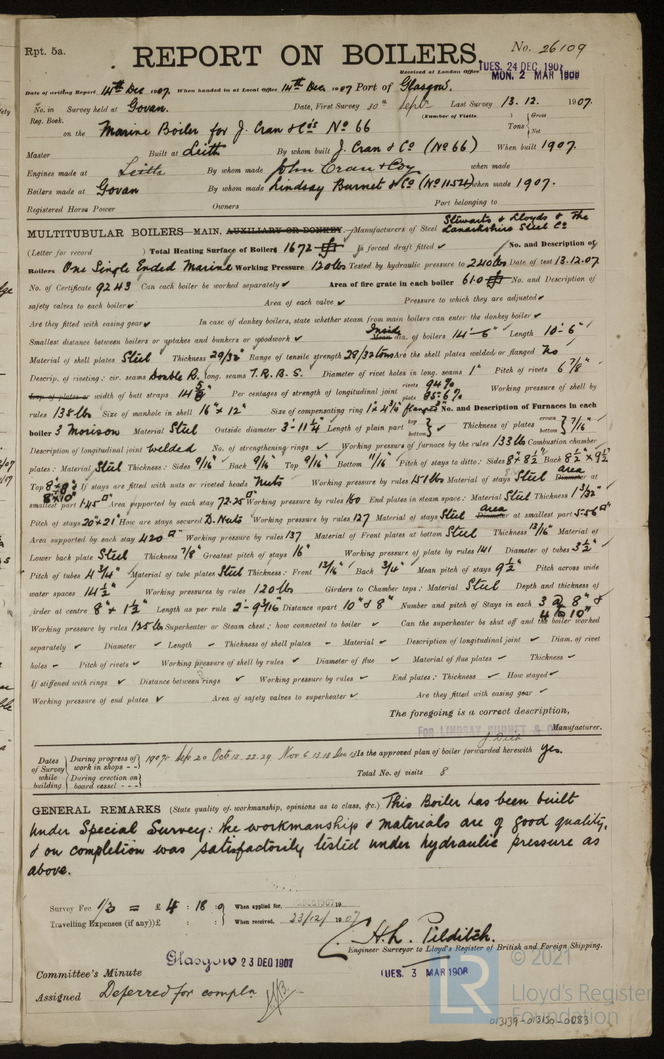 Rpt. 5a.
REPORT ON BOILERS.
No. 26109
Received at London Office TUES. 24 DEC 1907
MON. 2 MAR 1908
Date of writing Report 14th Dec 1907. When handed in at Local Office 14th Dec 1907 Port of Glasgow.
No. in Survey held at Govan. Date, First Survey 30th Sept Last Survey 13.12. 1907.
Reg. Book. (Number of Visits ) Gross
on the Marine Boiler for J. Cran & Co's No 66 Tons Net
Master Built at Leith By whom built J. Cran & Co (No 66) When built 1907.
Engines made at Leith By whom made John Cran & Coy when made
Boilers made at Govan By whom made Lindsay Burnet & Co (No 1152) when made 1907.
Registered Horse Power Owners Port belonging to
MULTITUBULAR BOILERS—MAIN, AUXILIARY OR DONKEY.—Manufacturers of Steel Stewarts & Lloyds & The Lanarkshire Steel Co
(Letter for record ) Total Heating Surface of Boilers 1672 Is forced draft fitted ✓ No. and Description of
Boilers One Single Ended Marine Working Pressure 120 lbs Tested by hydraulic pressure to 240 lbs Date of test 13.12.07.
No. of Certificate 9243 Can each boiler be worked separately ✓ Area of fire grate in each boiler 61.0 No. and Description of
safety valves to each boiler ✓ Area of each valve ✓ Pressure to which they are adjusted ✓
Are they fitted with easing gear ✓ In case of donkey boilers, state whether steam from main boilers can enter the donkey boiler ✓
Smallest distance between boilers or uptakes and bunkers or woodwork ✓ Inside dia. of boilers 14'-6" Length 10'-6"
Material of shell plates Steel Thickness 29/32" Range of tensile strength 28/32 tons Are the shell plates welded or flanged No
Descrip. of riveting: cir. seams Double R. long. seams T.R.B.S. Diameter of rivet holes in long. seams 1" Pitch of rivets 6 7/8"
Lap of plates or width of butt straps 14 5/8" Per centages of strength of longitudinal joint rivets 94% plate 85.6% Working pressure of shell by
rules 138 lbs Size of manhole in shell 16" × 12" Size of compensating ring flanged No. and Description of Furnaces in each
boiler 3 Morison Material Steel Outside diameter 3'-11 1/4" Length of plain part top bottom ✓ Thickness of plates crown bottom 7/16"
Description of longitudinal joint welded No. of strengthening rings ✓ Working pressure of furnace by the rules 133 lbs Combustion chamber
plates: Material Steel Thickness: Sides 9/16" Back 9/16 Top 9/16" Bottom 11/16" Pitch of stays to ditto: Sides 8 1/2" × 8 1/2" Back 8 1/2" × 9 1/2"
Top If stays are fitted with nuts or riveted heads Nuts Working pressure by rules 151 lbs Material of stays Steel Diameter area at
smallest part 1.45 Area supported by each stay 72.25 Working pressure by rules 160 End plates in steam space: Material Steel Thickness 1 3/32"
Pitch of stays 20" × 21" How are stays secured D. Nuts Working pressure by rules 127 Material of stays Steel Diameter Area at smallest part 5.56
Area supported by each stay 420 Working pressure by rules 137 Material of Front plates at bottom Steel Thickness 13/16" Material of
Lower back plate Steel Thickness 7/8" Greatest pitch of stays 16" Working pressure of plate by rules 141 Diameter of tubes 3 1/2"
Pitch of tubes 4 3/4" Material of tube plates Steel Thickness: Front 13/16" Back 3/4" Mean pitch of stays 9 1/2" Pitch across wide
water spaces 14 1/2" Working pressures by rules 120 lbs Girders to Chamber tops: Material Steel Depth and thickness of
girder at centre 8" × 1 1/2" Length as per rule 2'-9 3/16" Distance apart 10" & 8" Number and pitch of Stays in each 3 @ 8" &
Working pressure by rules 135 lbs Superheater or Steam chest; how connected to boiler ✓ Can the superheater be shut off and the boiler worked
separately ✓ Diameter ✓ Length – Thickness of shell plates – Material ✓ Description of longitudinal joint ✓ Diam. of rivet
holes – Pitch of rivets ✓ Working pressure of shell by rules ✓ Diameter of flue ✓ Material of flue plates ✓ Thickness ✓
If stiffened with rings ✓ Distance between rings ✓ Working pressure by rules ✓ End plates: Thickness ✓ How stayed ✓
Working pressure of end plates ✓ Area of safety valves to superheater ✓ Are they fitted with easing gear ✓
The foregoing is a correct description,
FOR LINDSAY BURNET & CO Manufacturer.
Dates of Survey while building During progress of work in shops - - 1907: Sep 20 Oct 12.22.29 Nov 6.13.18 Dec 13 Is the approved plan of boiler forwarded herewith Yes.
During erection on board vessel - - - Total No. of visits 8
GENERAL REMARKS (State quality of workmanship, opinions as to class, &c.) This Boiler has been built
under Special Survey: the workmanship & materials are of good quality,
& on completion was satisfactorily tested under hydraulic pressure as
above.
Survey Fee 1/3 = £ 4 : 18 : 9 When applied for, 19
Travelling Expenses (if any) £ : : When received, 23/12/1907
H.L. Pilditch.
Engineer Surveyor to Lloyd's Register of British and Foreign Shipping.
Committee's Minute Glasgow 23 DEC 1907 TUES. 3 MAR 1908
Assigned Deferred for compln
LR © 2021
Lloyd's Register
Foundation
013139-013150-0083